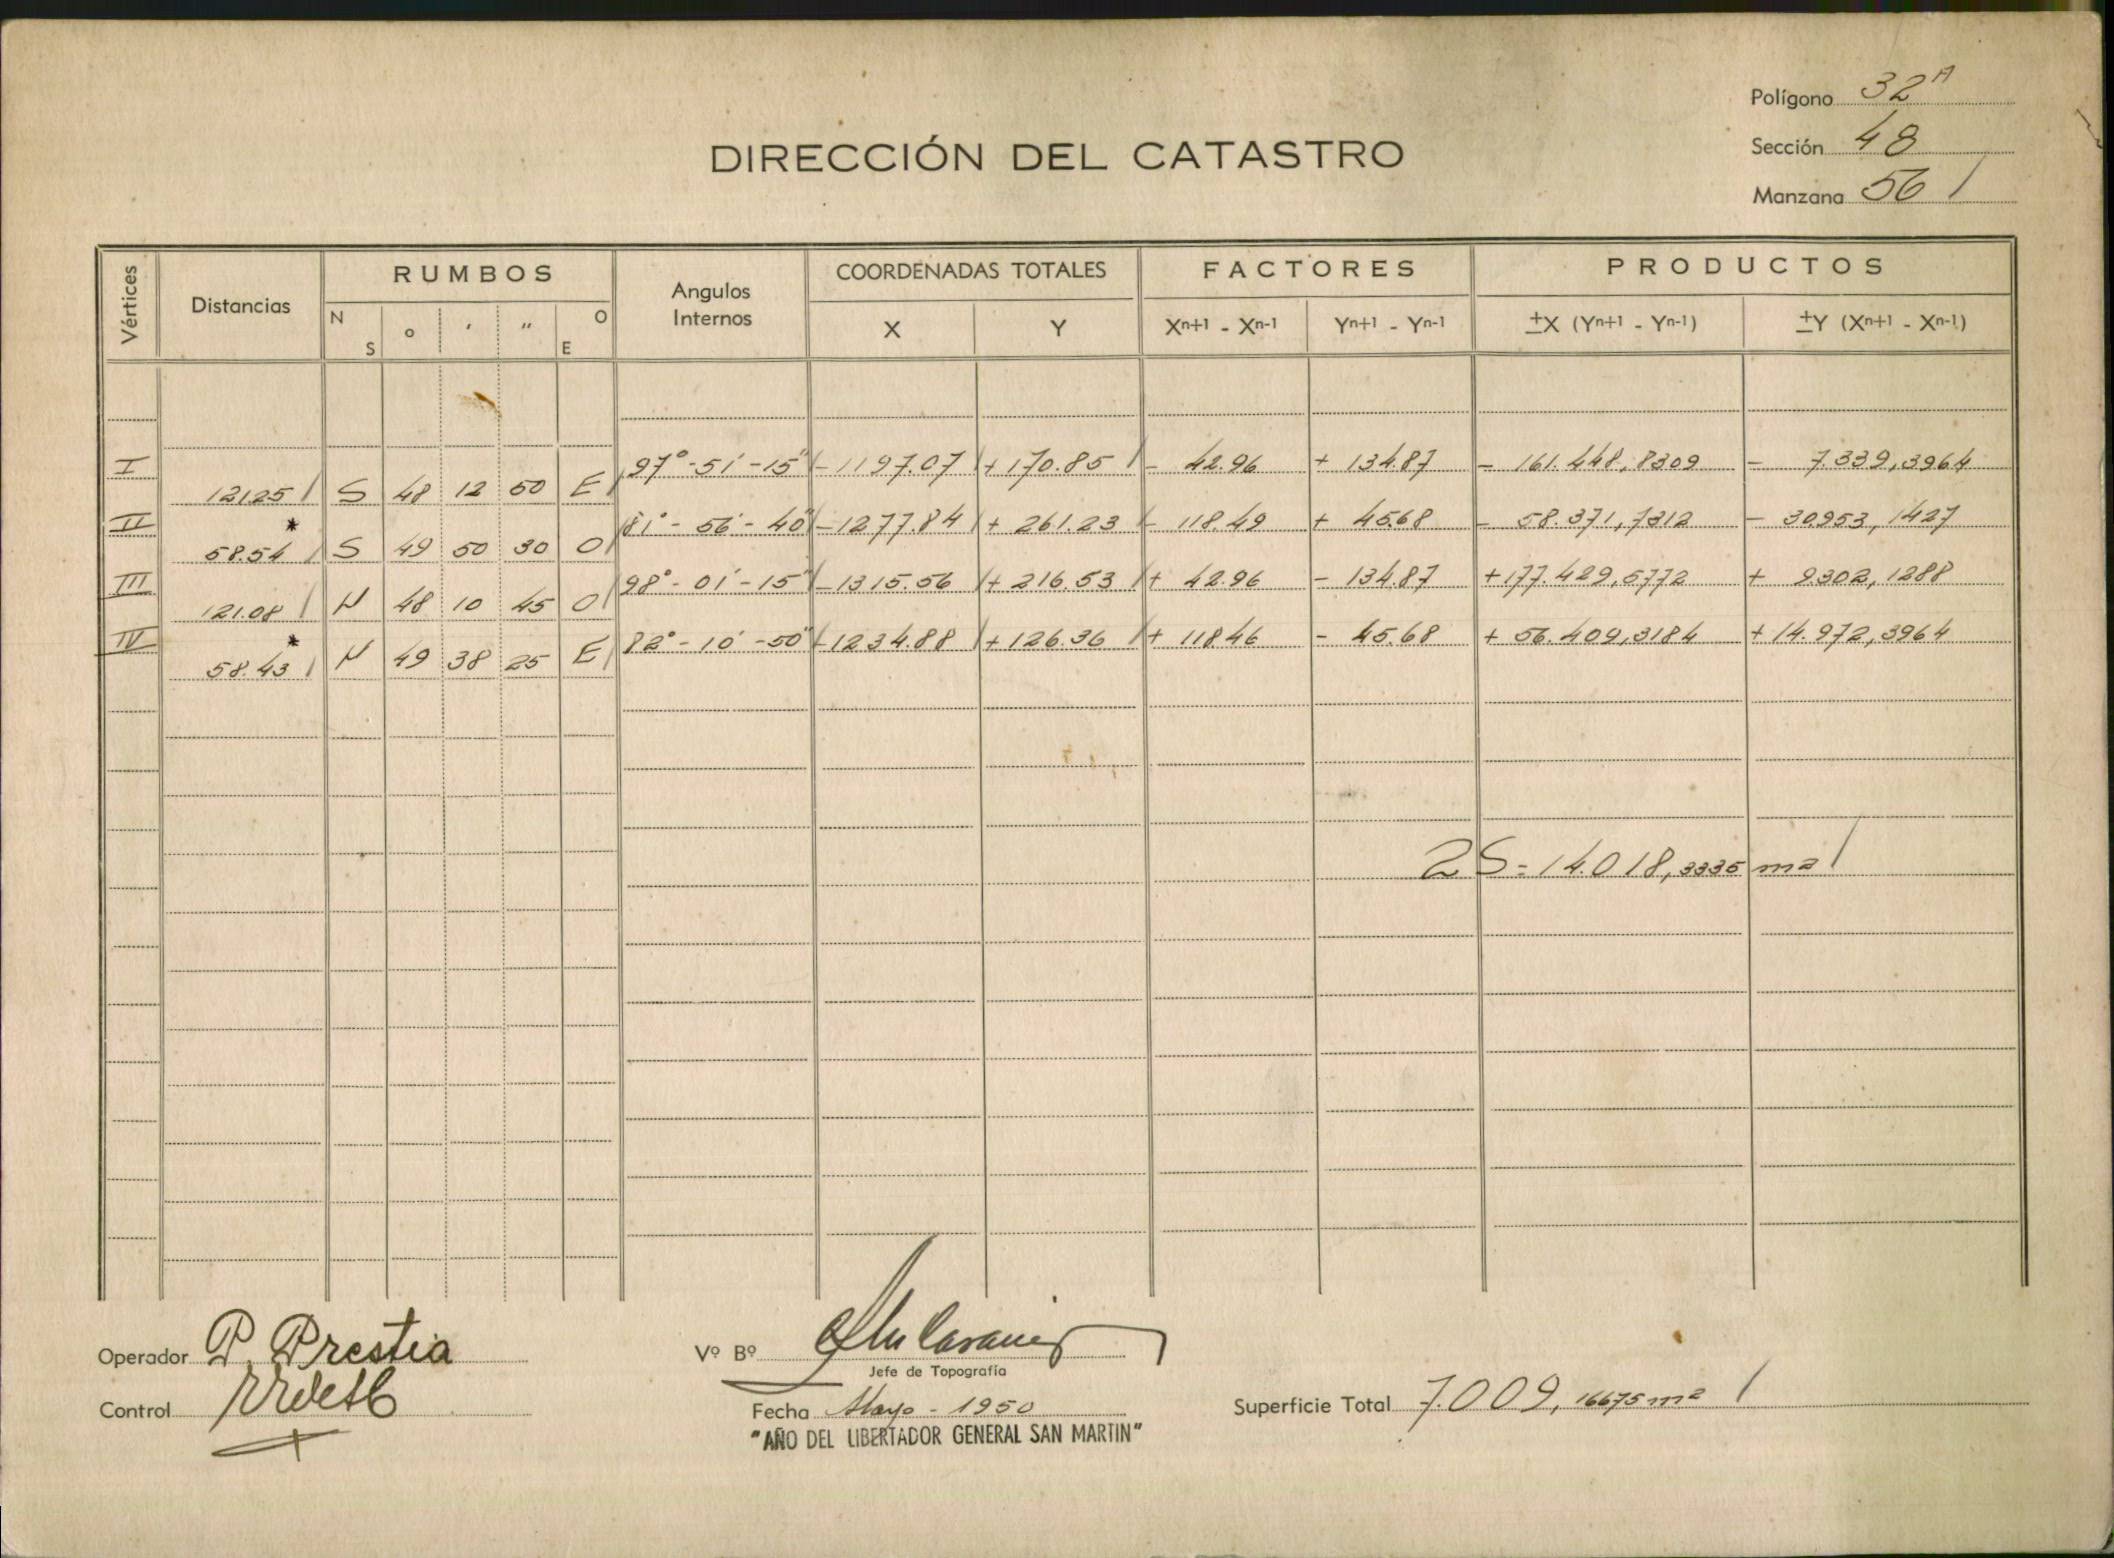 Polígono 32A
Sección 48
Manzana 56 /
DIRECCIÓN DEL CATASTRO
Vértices Distancias RUMBOS Angulos Internos COORDENADAS TOTALES FACTORES PRODUCTOS
N S ° ' " O E X Y Xn+1 - Xn-1 Yn+1 - Yn-1 ±X (Yn+1 - Yn-1) ±Y (Xn+1 - Xn-1)
I 97°-51'-15" -1197.07 / +170.85 / - 42.96 + 134.87 - 161.448,8309 - 7.339,3964
121.25 / S 48 12 50 E /
II * 81°-56'-40" -1277.84 / + 261.23 / - 118.49 + 45.68 - 58.371,7312 - 30953,1427
58.54 / S 49 50 30 O /
III 98°-01'-15" -1315.56 / + 216.53 / + 42.96 - 134.87 +177.429,5772 + 9.302,1288
121.08 / N 48 10 45 O /
IV * 82°-10'-50" -1234.88 / +126.36 / + 118.46 - 45.68 + 56.409,3184 + 14.972,3964
58.43 / N 49 38 25 E /
2S = 14.018,3335 m2 /
Operador P. Prestia
Vº Bº
Jefe de Topografía
Control
Fecha Mayo - 1950
Superficie Total 7.009,16675 m2 /
"AÑO DEL LIBERTADOR GENERAL SAN MARTIN"